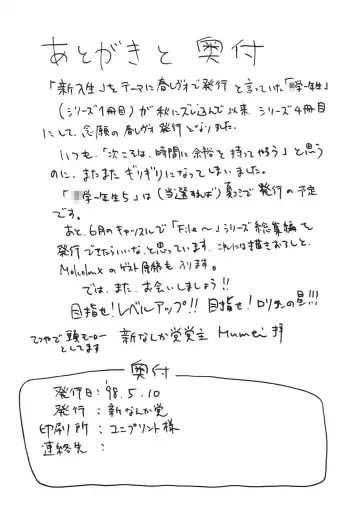 あとがきと 奥付
「新入生」をテーマに春レヴォで発行 と言っていた「 学一年生」
(シリーズ1冊目) が 秋にズレ込んで以来 シリーズ4冊目
にして、念願の春レヴォ発行となりました。
いつも、「次こそは、時間に余裕を持ってやろう」と思う
のに、またまた ギリギリになってしまいました。
「 学一年生5」は (当選すれば) 夏コミで 発行の予定
です。
あと、6月のキャッスルで「File~」シリーズ総集編を
発行できたらいいな、と思っています。これには描きおろしと、
のゲスト原稿も入ります。
では、また、お会いしましょう!!
目指せ!レベルアップ!! 目指せ! の星!!!
てつやで頭モーロー
としてます
新なんか党党主 Mumei 拝
奥付
発行日:'98.5.10
発行 : 新なんか党
印刷所 : ユニプリント様
連絡先 :